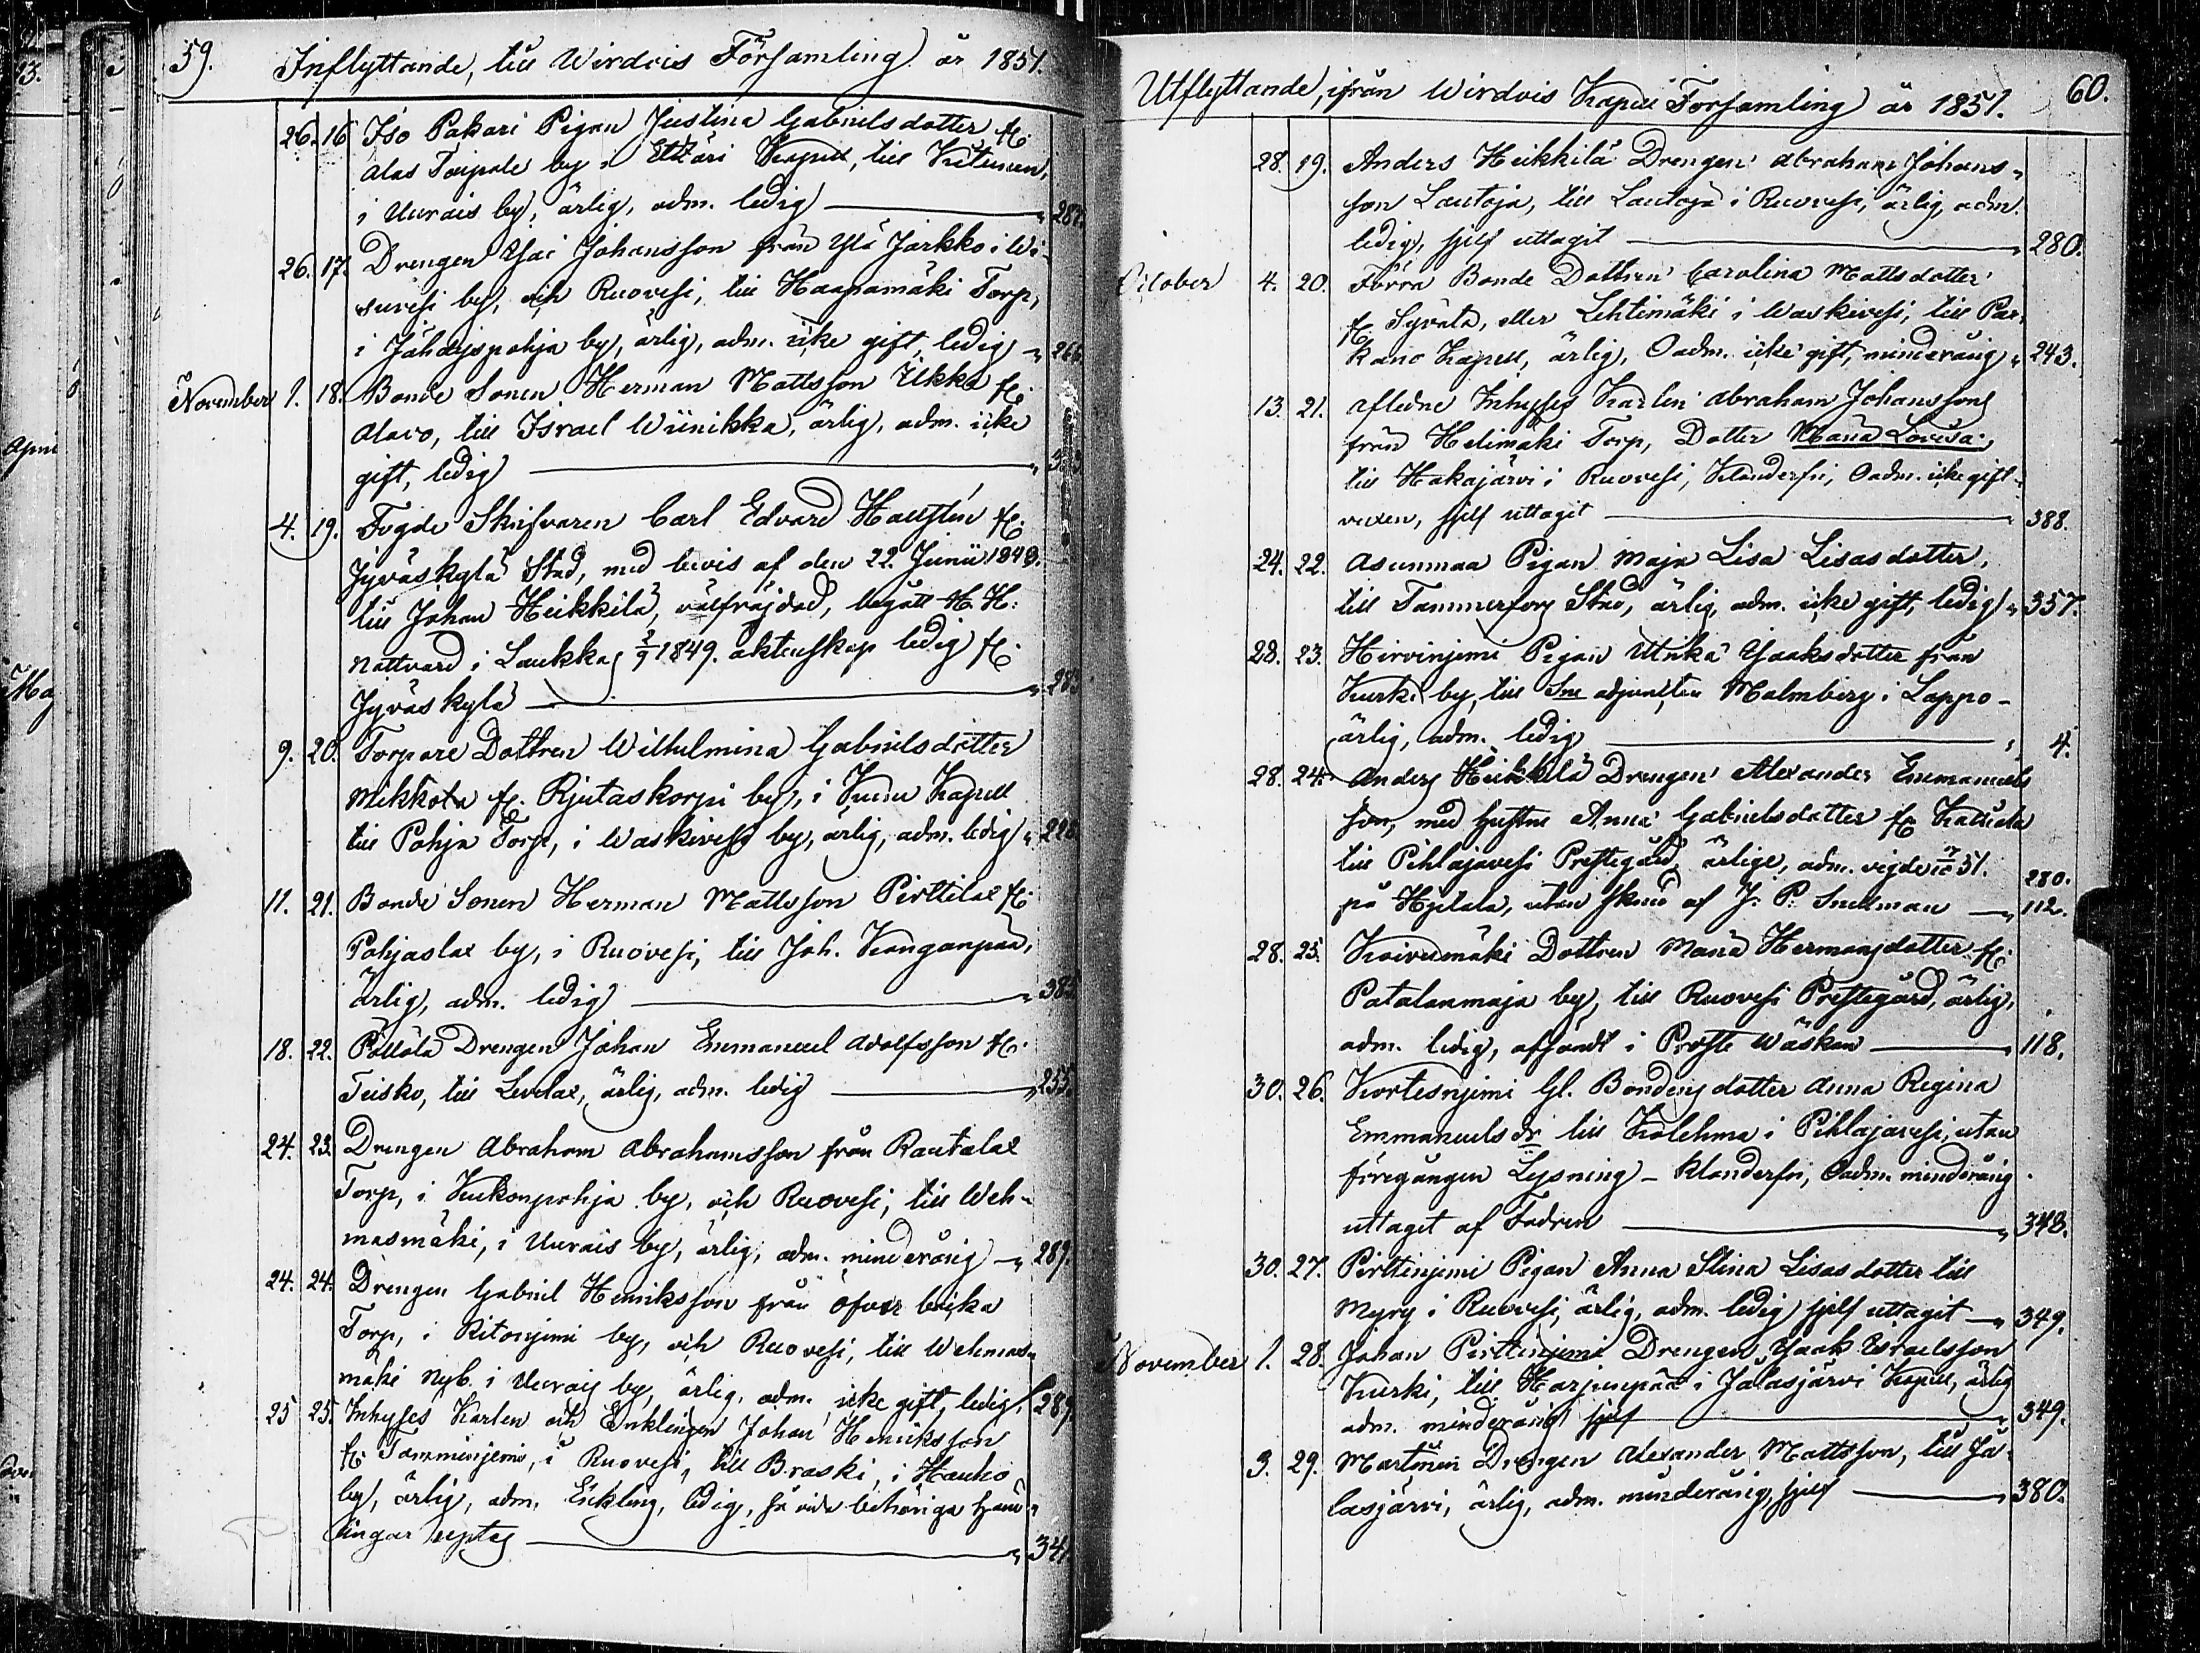 59. Inflyttande, till Wirdois Församling år 1851.
26. 16 Iso Pakari Pigan Justina Gabrielsdotter fr.
Alas Taipale by i Etzäri Kapell, till Kutunen,
i Uurais by, ärlig, adm. ledig — " 287.
26. 17. Drengen Isai Johansson från Ylä Jarkko i Wi-
suvesi by, och Ruovesi, till Haapamäki Torp,
i Jähdyspohja by, ärlig, adm. icke gift, ledig " 266.
November 1. 18. Bonde Sonen Herman Mattsson Ukka fr.
Alavo, till Israel Wiinikka, ärlig, adm. icke
gift, ledig — "
4. 19. Fogde Skrifvaren Carl Edvard fr.
Jyväskylä Stad, med bevis af den 22. Junii 1849.
till Johan Heikkilä, välfräjdad, begått H. H.
Nattvard i Laukkas 2/9 1849. äktenskap ledig fr.
Jyväskylä — " 283
9. 20. Torpare Dottren Wilhelmina Gabrielsdotter
Mikkola fr. Rjutaskorpi by, i Kuru Kapell
till Pohja Torp, i Waskivesi by, ärlig, adm. ledig " 228
11. 21. Bonde Sonen Herman Mattsson Pirttilax fr.
Pohjaslax by, i Ruovesi, till Joh. Kanganpää,
ärlig, adm. ledig — " 385
18. 22. Pöllölä Drengen Johan Emmanuel Adolfsson fr.
Teisko, till Levelax, ärlig, adm. ledig — " 255.
24. 23. Drengen Abraham Abrahamsson från Rautalax
Torp, i Kukonpohja by, och Ruovesi, till Weh-
masmäki, i Uurais by, ärlig, adm. minderårig — " 289.
24. 24. Drengen Gabriel Henriksson från öfver
Torp, i Ritoinjemi by, och Ruovesi, till Wehmas-
mäki Nyb. i Uurais by, ärlig, adm. icke gift, ledig, 289.
25 25. Inhyses Karlen och Enklingen Johan Henriksson
fr. Tamminjemi, i Ruovesi, till Braski, i Hauho
by, ärlig, adm. Enkling, ledig, så vida behöriga hand-
lingar — " 341.
Utflyttande, ifrån Wirdois Kapell Församling år 1851. 60.
28. 19. Anders Heikkilä Drengen Abraham Johans-
son Lautoja, till Lautoja i Ruovesi, ärlig, adm.
ledig, sjelf uttagit — " 280.
October 4. 20. Förra Bonde Dottren Carolina Mattsdotter
fr. Syvälä, eller Lehtimäki i Waskivesi, till Par-
kano Kapell, ärlig, Oadm. icke gift, minderårig " 243.
13. 21. Afledne Inhyses Karlen Abraham Johanssons
från Helimäki Torp, Dotter Maria Lovisa
till Hakajärvi i Ruovesi, Klanderfri, Oadm. icke gift-
vuxen, sjelf uttagit — 388.
24. 22. Asunmaa Pigan Maja Lisa Lisasdotter,
till Tammerfors Stad, ärlig, adm. icke gift, ledig " 357.
28. 23. Hirvinjemi Pigan Ulrika Isaksdotter från
Kurki by, till Sne adjuncten Malmberg i Lappo-
ärlig, adm. ledig — " 4.
28. 24. Anders Heikkilä Drengen Alexander Emmanuels
son, med hustru Anna Gabrielsdotter fr.
till Pihlajavesi Prestegård, ärlige, adm. vigde 51. 280.
på Hjelala, utan skud af J. P. Snellman — " 112.
28. 25. Koivumäki Dottren Maria Hermansdotter fr.
Patalanmaja by, till Ruovesi Prestegård, ärlig,
adm. ledig, afsändt i Proste Wäskan — " 118.
30. 26. Kortesnjemi Gl. Bondens dotter Anna Regina
Emmanuels dr till Kolehma i Pihlajavesi, utan
föregången Lysning – klanderfri, Oadm. minderårig
uttaget af Fadren — " 348.
30. 27. Pirttinjemi Pigan Anna Stina Lisasdotter till
Myry i Ruovesi, ärlig, adm. ledig sjelf uttagit — " 349.
November 1. 28. Johan Pirttinjemi Drengen Isaak Israelsson
Kurki, till Harjunpää i Jalasjärvi Kapell, ärlig
adm. minderårig sjelf — " 349.
3. 29. Martinen Drengen Alexander Mattsson, till Ja-
lasjärvi, ärlig, adm. minderårig, sjelf — " 380.